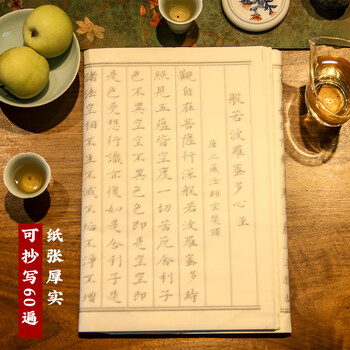 般若波羅蜜多心經
唐三藏法師玄奘譯
觀自在菩薩行深般若波羅蜜多時
照見五蘊皆空度一切苦厄舍利子
色不異空空不異色色即是空空即
是色受想行識亦復如是舍利子是
諸法空相不生不滅不垢不淨不增
纸张厚实
可抄写60遍